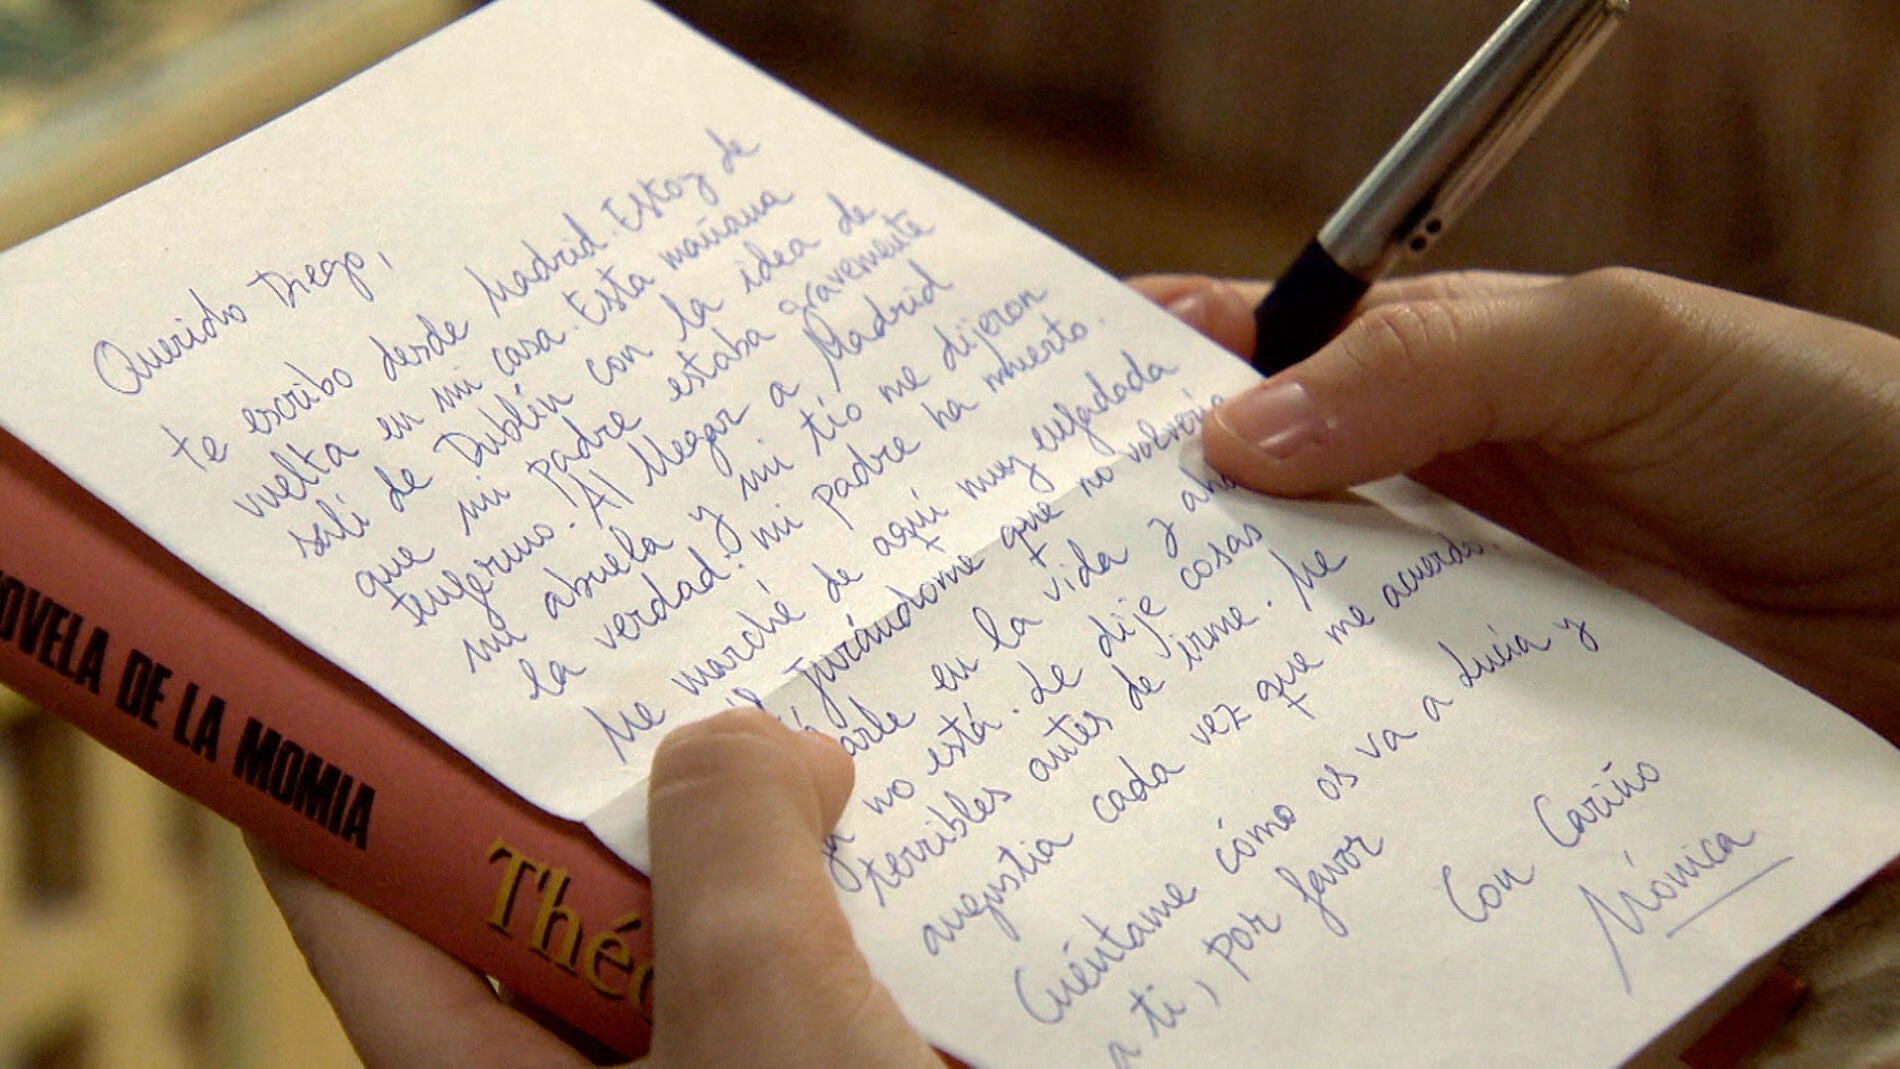 Querido Diego,
te escribo desde Madrid. Estoy de
vuelta en mi casa. Esta mañana
salí de Dublín con la idea de
que mi padre estaba gravemente
enfermo. Al llegar a Madrid
mi abuela y mi tío me dijeron
la verdad: mi padre ha muerto.
Me marché de aquí muy enfadada
jurándome que no volvería
en la vida y
no está. Le dije cosas
terribles antes de irme. Me
angustia cada vez que me acuerdo.
Cuéntame cómo os va a Lucía y
a ti, por favor
Con Cariño
Mónica
NOVELA DE LA MOMIA